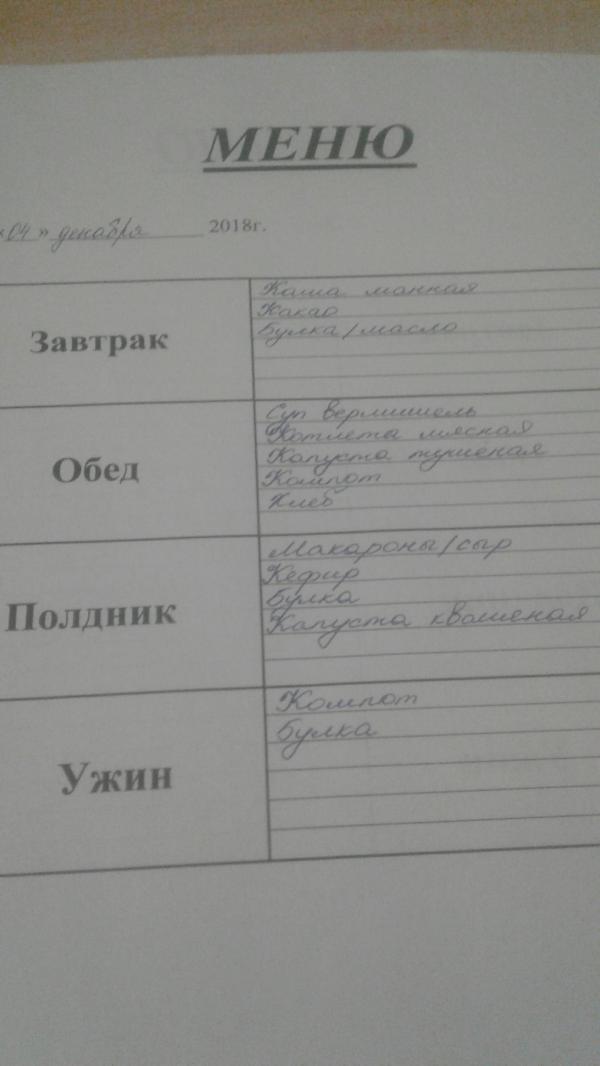 МЕНЮ
«04» декабря 2018г.
Завтрак
Каша манная
Какао
Булка/масло
Обед
Суп вермишель
Котлета мясная
Капуста тушеная
Компот
Хлеб
Полдник
Макароны/сыр
Кефир
Булка
Капуста квашеная
Ужин
Компот
Булка